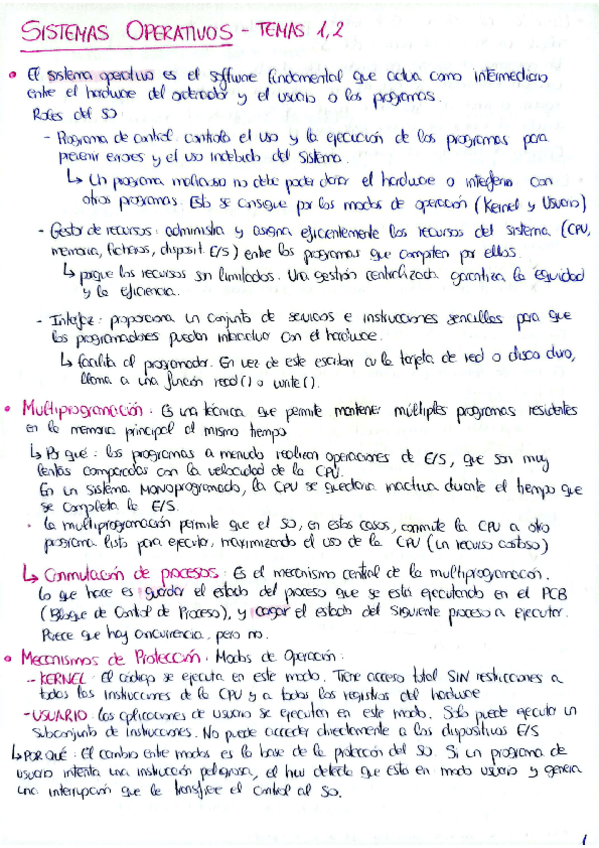 SISTEMAS OPERATIVOS - TEMAS 1,2
• El sistema operativo es el software fundamental que actúa como intermediario
entre el hardware del ordenador y el usuario o los programas.
Roles del SO:
- Programa de control: controla el uso y la ejecución de los programas para
prevenir errores y el uso indebido del sistema.
↳ Un programa malicioso no debe poder dañar el hardware o interferir con
otros programas. Esto se consigue por los modos de operación (Kernel y Usuario)
- Gestor de recursos: administra y asigna eficientemente los recursos del sistema (CPU,
memoria, ficheros, disposit. E/S) entre los programas que compiten por ellos.
↳ porque los recursos son limitados. Una gestión centralizada garantiza la equidad
y la eficiencia.
- Interfaz: proporciona un conjunto de servicios e instrucciones sencillas para que
los programadores puedan interactuar con el hardware.
↳ facilita al programador. En vez de este escribir en la tarjeta de red o disco duro,
llama a una función read() o write().
• Multiprogramación: Es una técnica que permite mantener múltiples programas residentes
en la memoria principal al mismo tiempo
↳ Por qué: los programas a menudo realizan operaciones de E/S, que son muy
lentas comparadas con la velocidad de la CPU.
En un sistema monoprogramado, la CPU se quedaría inactiva durante el tiempo que
se completa la E/S.
· la multiprogramación permite que el SO, en estos casos, conmute la CPU a otro
programa listo para ejecutar, maximizando el uso de la CPU (un recurso costoso)
↳ Conmutación de procesos: Es el mecanismo central de la multiprogramación.
Lo que hace es guardar el estado del proceso que se está ejecutando en el PCB
(Bloque de Control de Proceso), y cargar el estado del siguiente proceso a ejecutar.
Parece que hay concurrencia, pero no.
• Mecanismos de Protección: Modos de Operación:
- KERNEL: El código se ejecuta en este modo. Tiene acceso total SIN restricciones a
todas las instrucciones de la CPU y a todos los registros del hardware
- USUARIO: las aplicaciones de usuario se ejecutan en este modo. Solo puede ejecutar un
subconjunto de instrucciones. No puede acceder directamente a los dispositivos E/S
↳ POR QUÉ: El cambio entre modos es la base de la protección del SO. Si un programa de
usuario intenta una instrucción peligrosa, el hw detecta que esta en modo usuario y genera
una interrupción que le transfiere el control al SO.
1